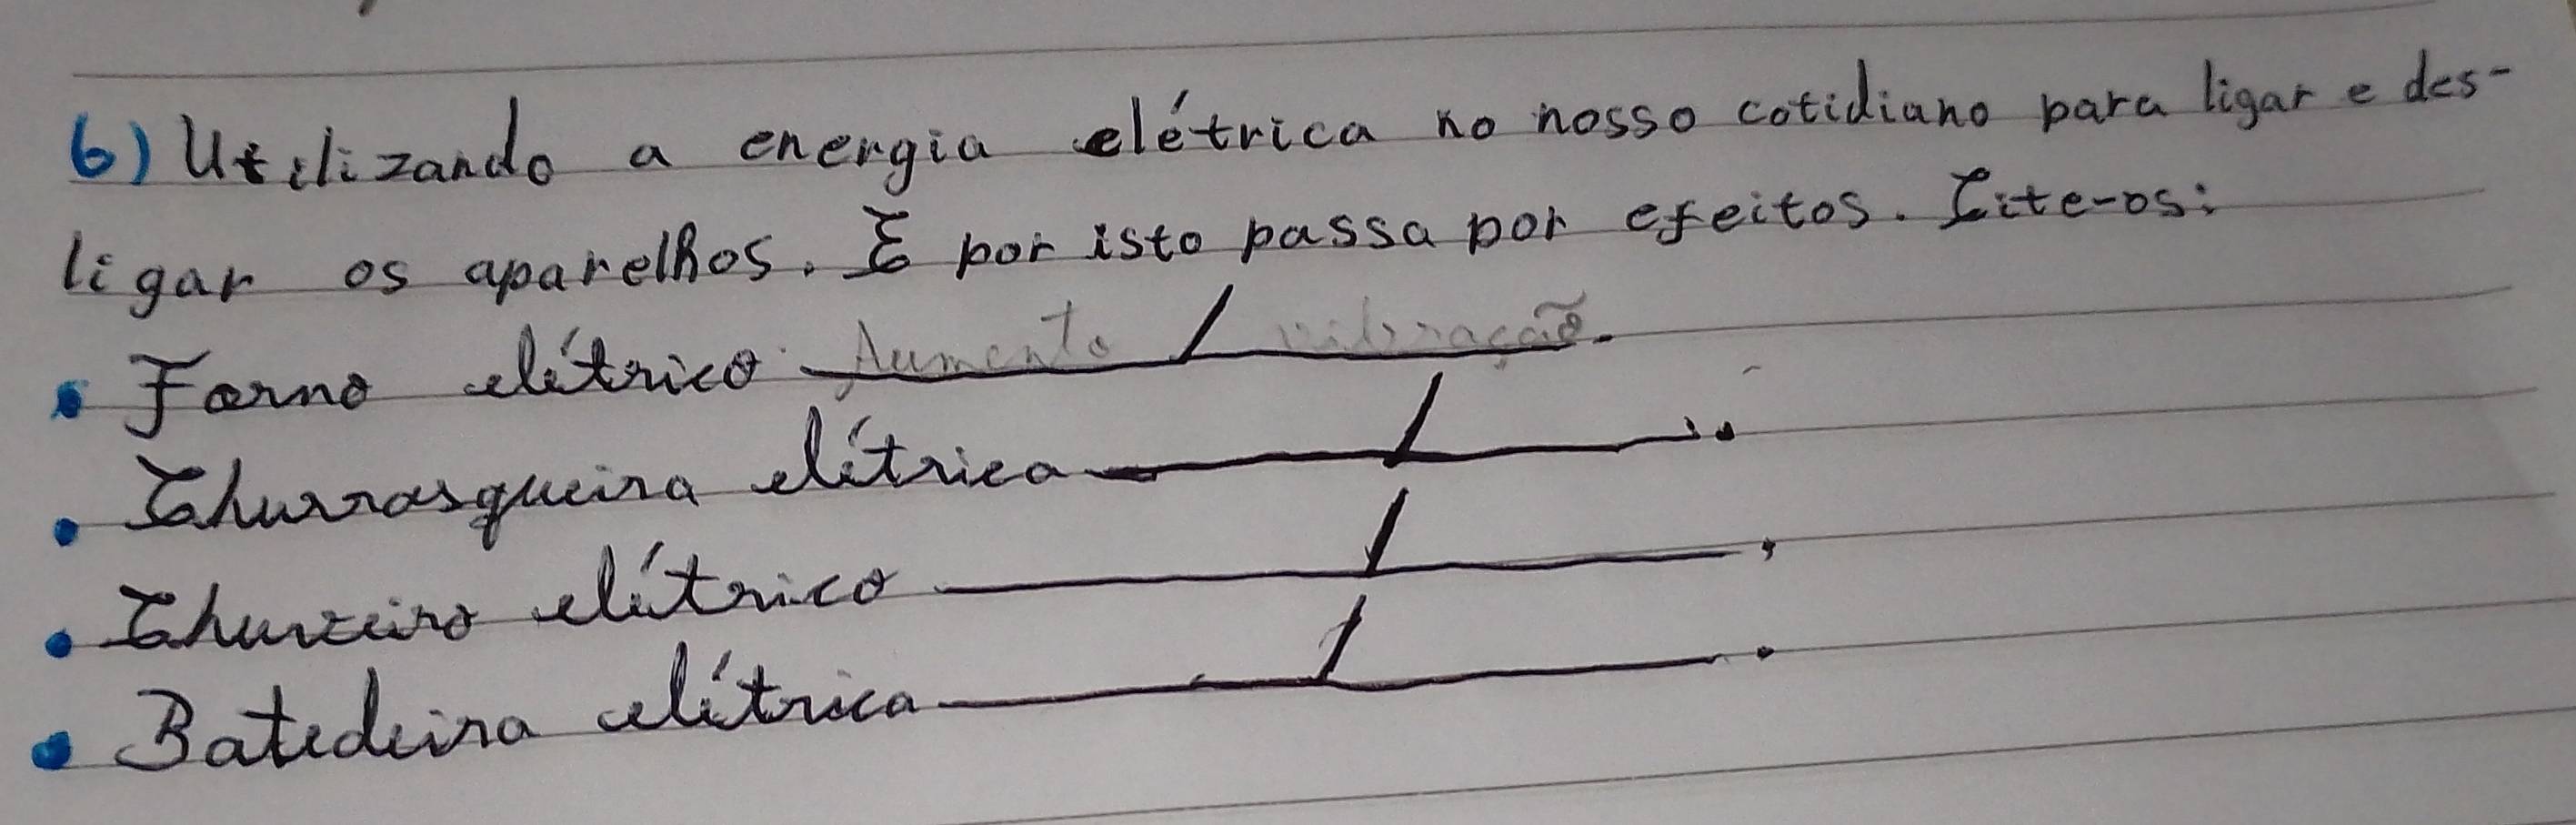 6) Utilizando a energia elétrica no nosso cotidiano para ligar e des-
ligar os aparelhos. E por isto passa por efeitos. Cite-os:
• Forno elétrico Aumento / vibração.
• Churrasqueira elétrica / .
• Chuveiro elétrico / .
• Batedeira elétrica / .